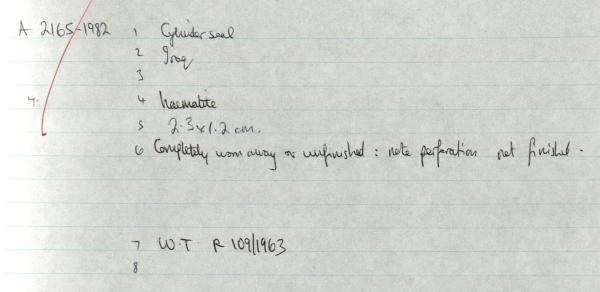 A 2165-1982 1 Cylinder seal
2 Iraq
3
4 haematite
5 2.3 x 1.2 cm.
6 Completely worn away or unfinished : note perforation not finished.
7 W.T R 109/1963
8